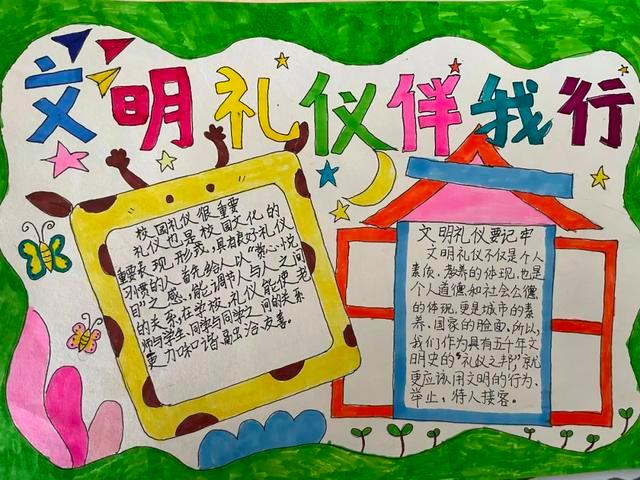 文明礼仪伴我行
校园礼仪很重要
礼仪也是校园文化的
重要表现形式,具有良好礼仪
习惯的人,首先给人以“赏心悦
目”之感,能调节人与人之间
的关系,在学校,礼仪能使老
师与学生,同学与同学之间的关系
更加和谐、融洽、友善。
文明礼仪要记牢
文明礼仪不仅是个人
素质、教养的体现,也是
个人道德和社会公德
的体现,更是城市的素
养、国家的脸面,所以,
我们作为具有五千年文
明史的“礼仪之邦”,就
更应该用文明的行为、
举止,待人接客。